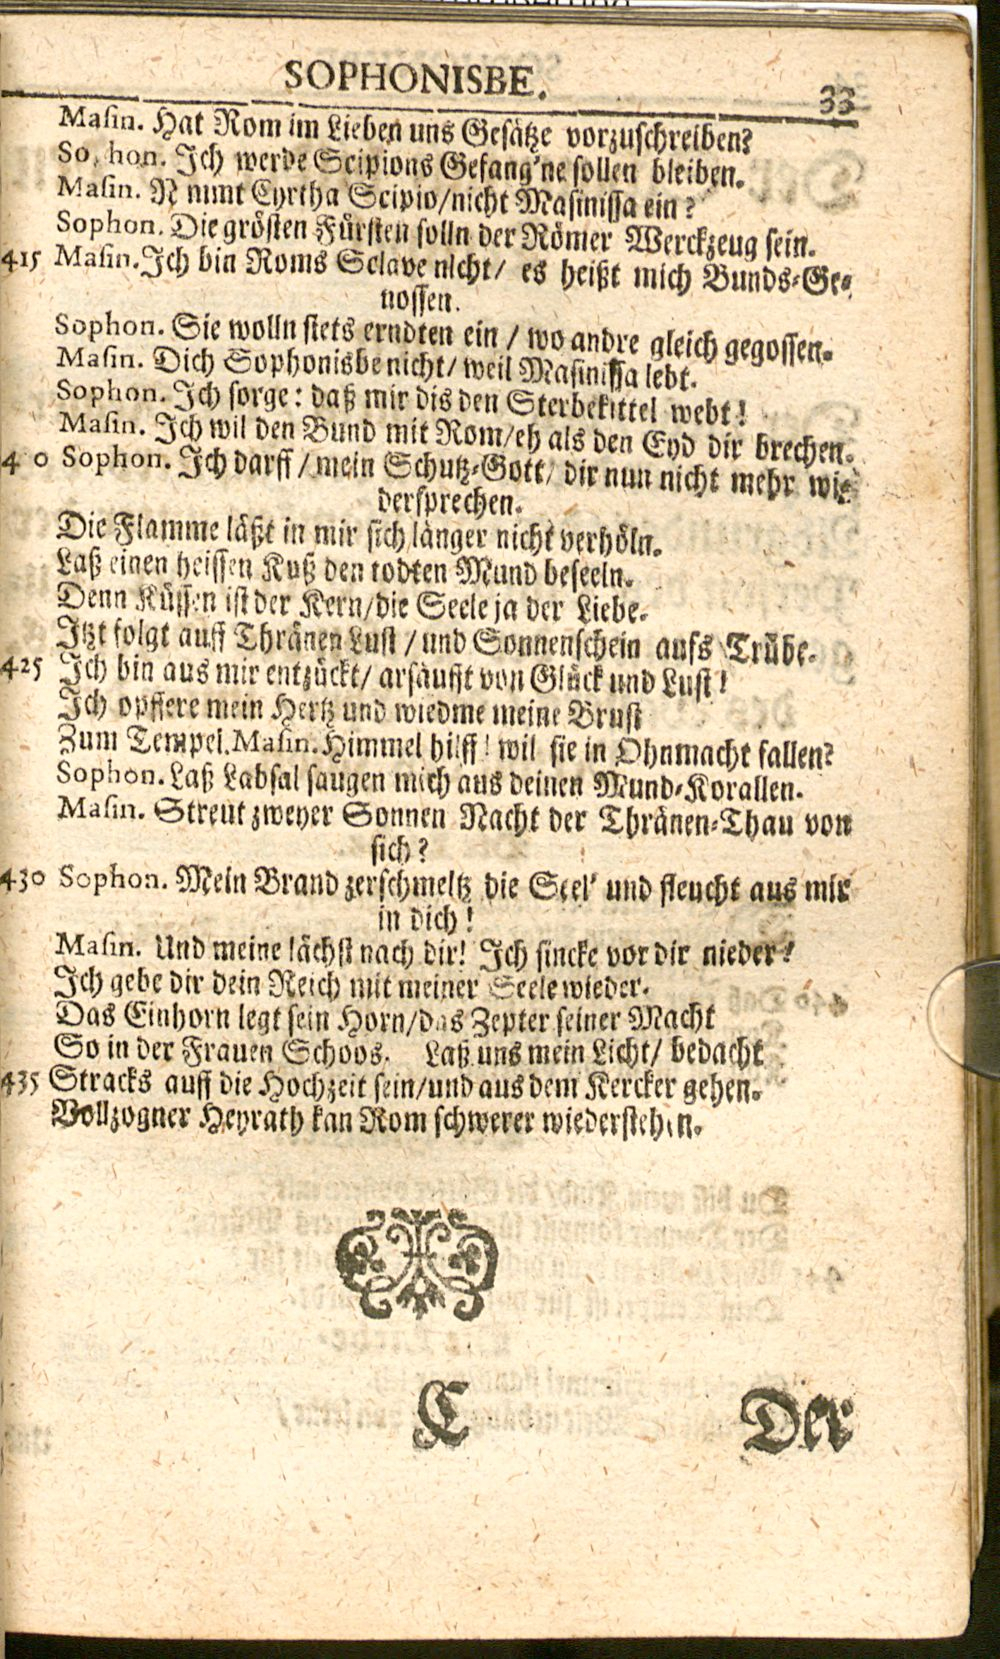 SOPHONISBE.
33
Masin. Hat Rom im Lieben uns Gesätze vorzuschreiben?
So hon. Ich werde Scipions Gefang'ne sollen bleiben.
Masin. N mmt Cyrtha Scipio/nicht Masinissa ein?
Sophon. Die grösten Fürsten solln der Römer Werckzeug sein.
415 Masin. Ich bin Roms Sclave nicht/ es heißt mich Bunds-Ge-
nossen.
Sophon. Sie wolln stets erndten ein / wo andre gleich gegossen.
Masin. Dich Sophonisbe nicht/ weil Masinissa lebt.
Sophon. Ich sorge: daß mir dis den Sterbekittel webt!
Masin. Ich wil den Bund mit Rom/eh als den Eyd dir brechen.
4 0 Sophon. Ich darff / mein Schutz-Gott/ dir nun nicht mehr wie
dersprechen.
Die Flamme läßt in mir sich länger nicht verhöln.
Laß einen heissen Kuß den todten Mund beseeln.
Denn Küssen ist der Kern/die Seele ja der Liebe.
Itzt folgt auff Thränen Lust / und Sonnenschein aufs Trübe.
425 Ich bin aus mir entzückt/ ersäufft von Glück und Lust!
Ich opffere mein Hertz und wiedme meine Brust
Zum Tempel. Masin. Himmel hilff! wil sie in Ohnmacht fallen?
Sophon. Laß Labsal saugen mich aus deinen Mund-Korallen.
Masin. Streut zweyer Sonnen Nacht der Thränen-Thau von
sich?
430 Sophon. Mein Brand zerschmeltz die Seel' und fleucht aus mir
in dich!
Masin. Und meine lächst nach dir! Ich sincke vor dir nieder!
Ich gebe dir dein Reich mit meiner Seele wieder.
Das Einhorn legt sein Horn/das Zepter seiner Macht
So in der Frauen Schoos. Laß uns mein Licht/ bedacht
435 Stracks auff die Hochzeit sein/und aus dem Kercker gehen.
Vollzogner Heyrath kan Rom schwerer wiederstehen.
C
Der